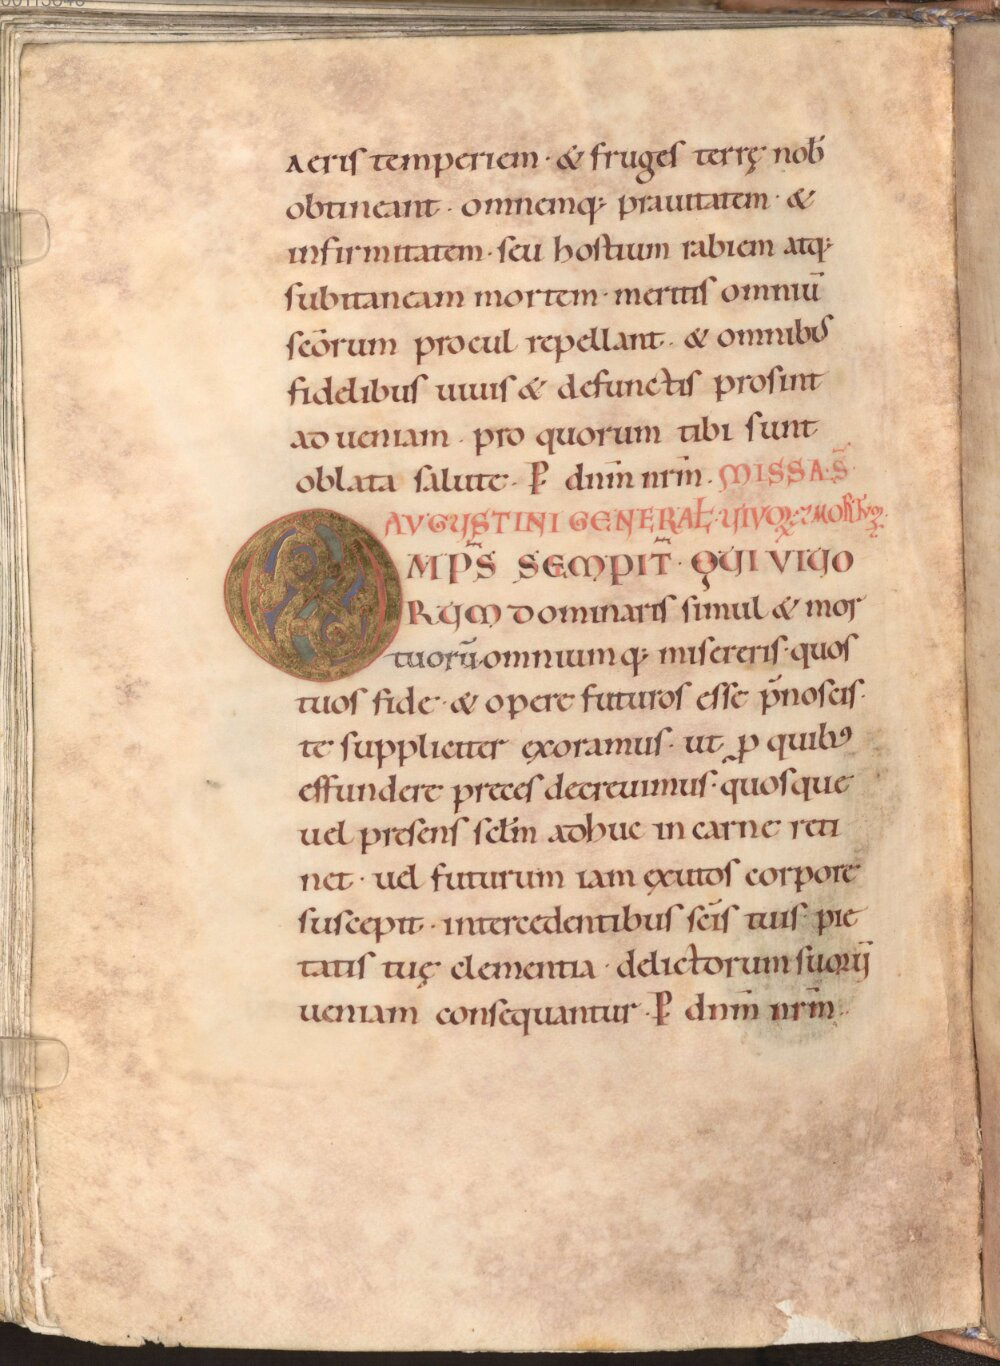 aeris temperiem · & fruges terrę nob̄
obtineant · omnemq; prauitatem · &
infirmitatem · seu hostium rabiem atq;
subitaneam mortem · meritis omniū
sc̄orum procul repellant · & omnibus
fidelibus uiuis & defunctis prosint
ad ueniam · pro quorum tibi sunt
oblata salute · P dnm̄ nrm̄ · MISSA S̄
AVGUSTINI GENERAL UIVOꝝ 7 MORTUOꝝ
OMPS̄ SEMPIT̄ · QUI VIUO
RUM dominaris simul & mor
tuorū omniumq; misereris · quos
tuos fide · & opere futuros esse p̄noscis ·
te suppliciter exoramus · ut p quibꝰ
effundere preces decreuimus · quosque
uel presens sclm̄ adhuc in carne reti
net · uel futurum iam exutos corpore
suscepit · intercedentibus sc̄is tuis · pie
tatis tuę clementia · delictorum suorū
ueniam consequantur · P dnm̄ nrm̄ ·